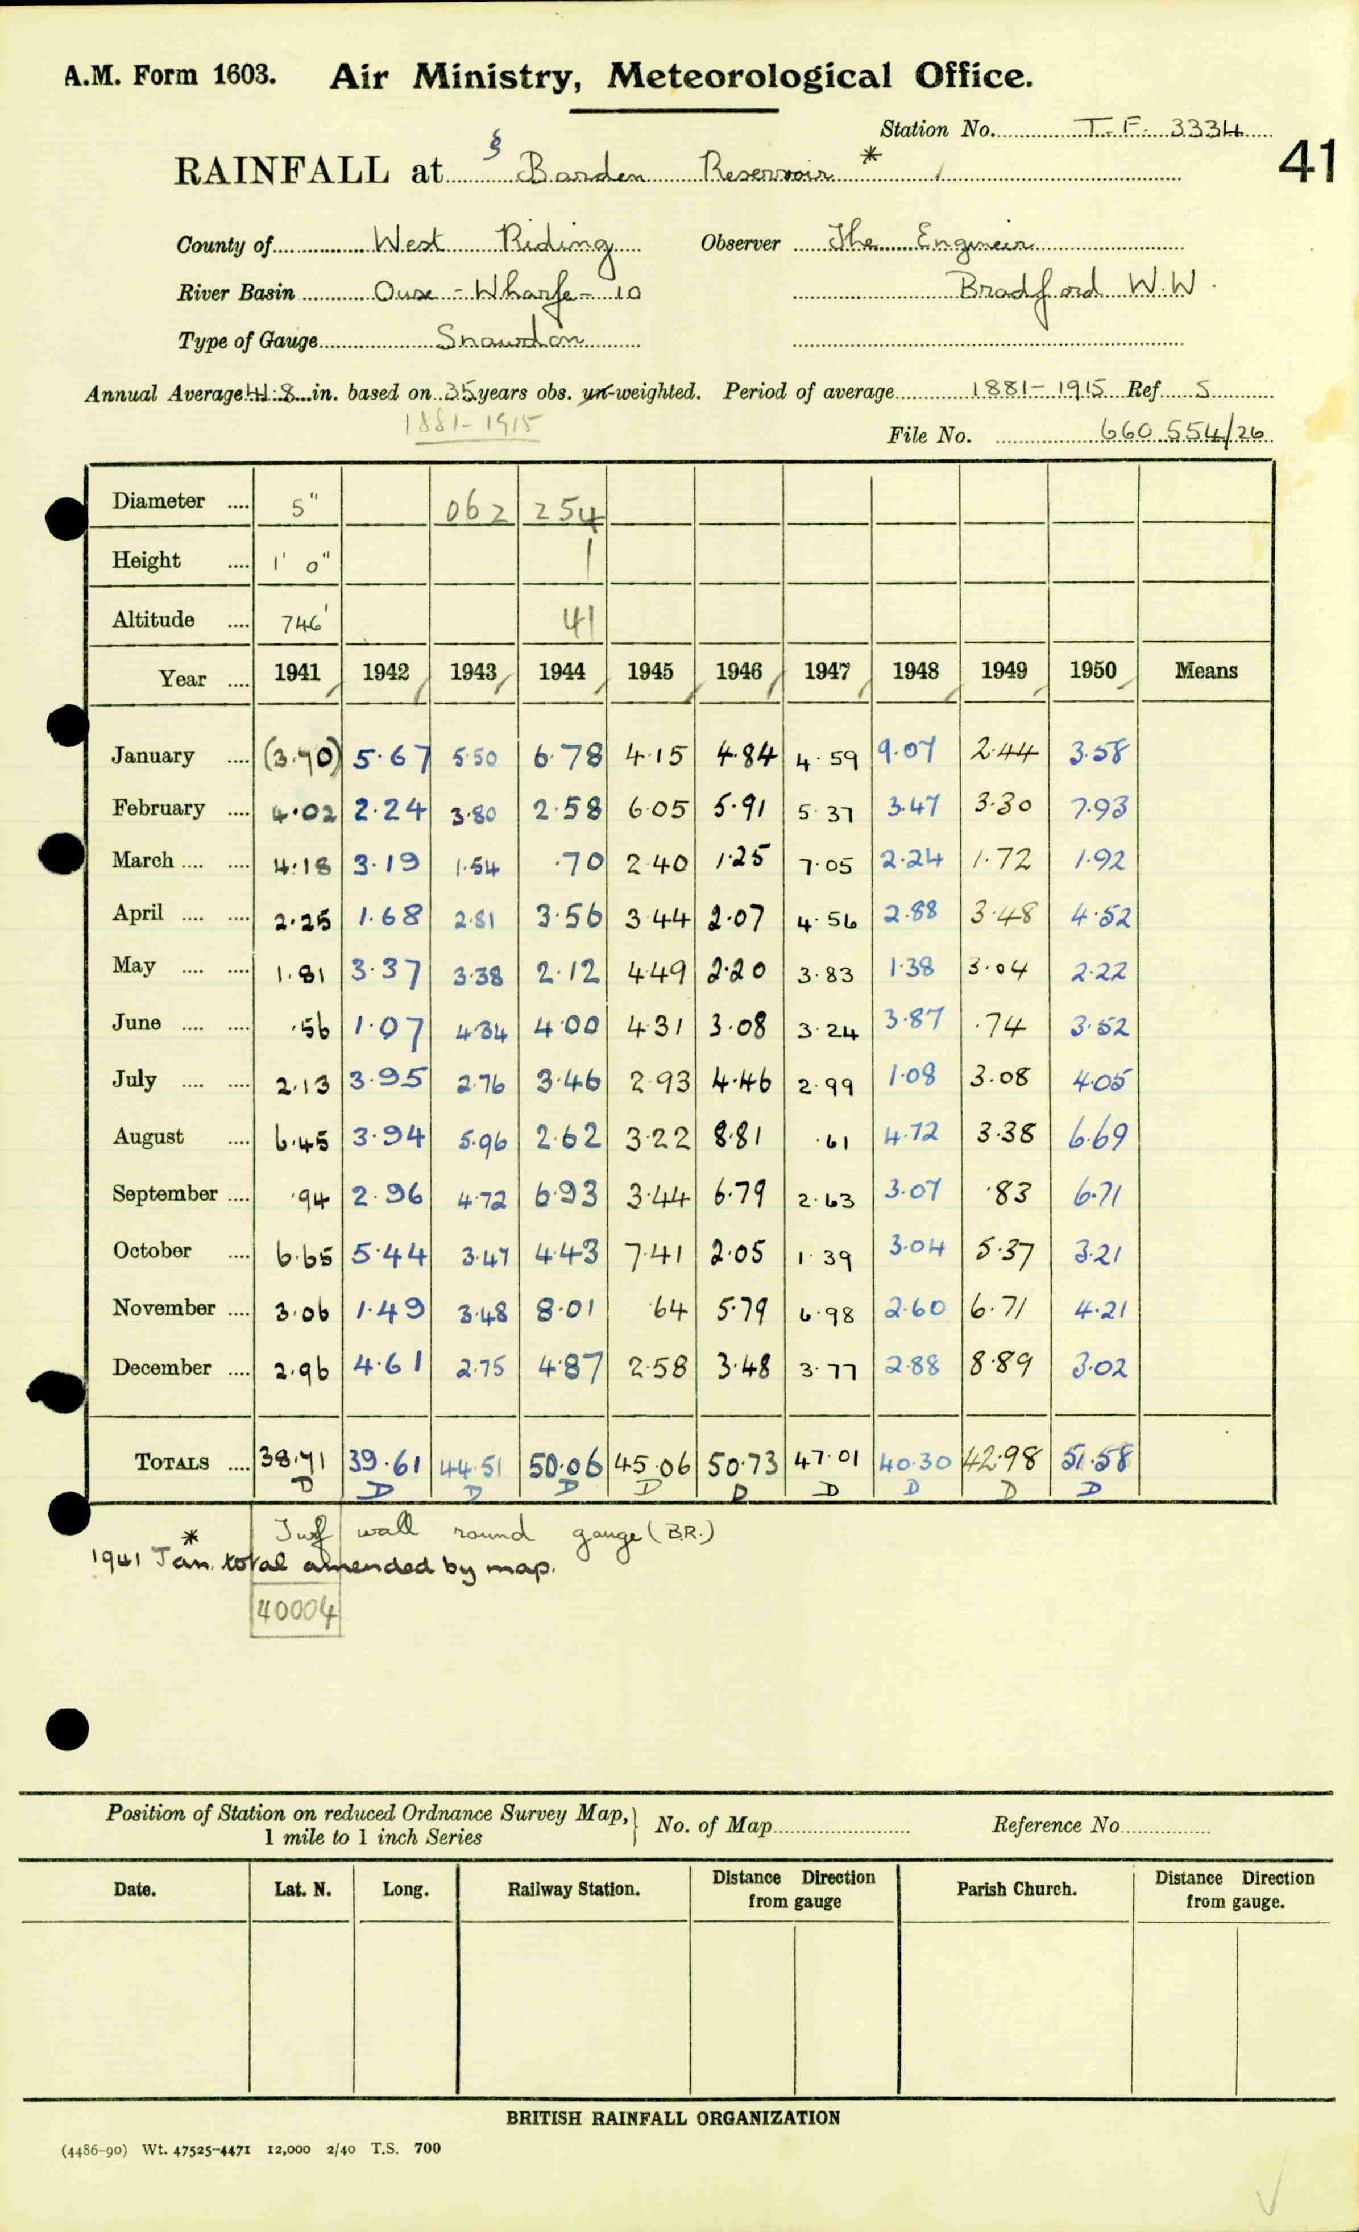 A.M. Form 1603. Air Ministry, Meteorological Office.
Station No. T.F. 3334
41
RAINFALL at § Barden Reservoir *
County of West Riding Observer The Engineer
River Basin Ouse - Wharfe - 10 Bradford W.W.
Type of Gauge Snowdon
Annual Average 41.8 in. based on 35 years obs. un-weighted. Period of average 1881-1915 Ref S
1881-1915
File No. 660554/26
Diameter .... 5" 062 254
Height .... 1' 0" 1
Altitude .... 746' 41
Year .... 1941 1942 1943 1944 1945 1946 1947 1948 1949 1950 Means
January .... (3.70) 5.67 5.50 6.78 4.15 4.84 4.59 9.07 2.44 3.58
February .... 4.02 2.24 3.80 2.58 6.05 5.91 5.37 3.47 3.30 7.93
March .... .... 4.18 3.19 1.54 .70 2.40 1.25 7.05 2.24 1.72 1.92
April .... .... 2.25 1.68 2.81 3.56 3.44 2.07 4.56 2.88 3.48 4.52
May .... .... 1.81 3.37 3.38 2.12 4.49 2.20 3.83 1.38 3.04 2.22
June .... .... .56 1.07 4.34 4.00 4.31 3.08 3.24 3.87 .74 3.52
July .... .... 2.13 3.95 2.76 3.46 2.93 4.46 2.99 1.08 3.08 4.05
August .... 6.45 3.94 5.96 2.62 3.22 8.81 .61 4.72 3.38 6.69
September .... .94 2.96 4.72 6.93 3.44 6.79 2.63 3.07 .83 6.71
October .... 6.65 5.44 3.47 4.43 7.41 2.05 1.39 3.04 5.37 3.21
November .... 3.06 1.49 3.48 8.01 .64 5.79 6.98 2.60 6.71 4.21
December .... 2.96 4.61 2.75 4.87 2.58 3.48 3.77 2.88 8.89 3.02
TOTALS .... 38.71 39.61 44.51 50.06 45.06 50.73 47.01 40.30 42.98 51.58
D D D D D D D D D D
* Turf wall round gauge (B.R.)
1941 Jan. total amended by map.
40004
Position of Station on reduced Ordnance Survey Map, 1 mile to 1 inch Series } No. of Map Reference No
Date. Lat. N. Long. Railway Station. Distance Direction from gauge Parish Church. Distance Direction from gauge.
BRITISH RAINFALL ORGANIZATION
(4486-90) Wt. 47525-4471 12,000 2/40 T.S. 700